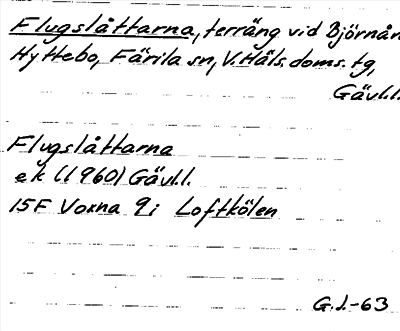 Flugslåttarna, terräng vid Björnån
Hyttebo, Färila sn, V. Häls. doms. tg,
Gävl.l.
Flugslåttarna
ek (1960) Gävl.l.
15F Voxna 9i Loftkölen
G.J.-63